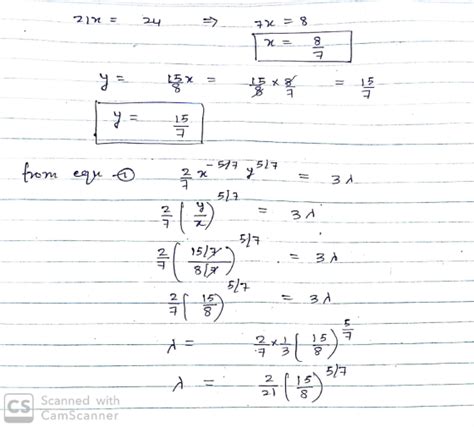 21x = 24 ⇒ 7x = 8
x = 8/7
y = 15/8 x = 15/8 × 8/7 = 15/7
y = 15/7
from equ - ① 2/7 x^(-5/7) y^(5/7) = 3λ
2/7 (y/x)^(5/7) = 3λ
2/7 ((15/7)/(8/7))^(5/7) = 3λ
2/7 (15/8)^(5/7) = 3λ
λ = 2/7 × 1/3 (15/8)^(5/7)
λ = 2/21 (15/8)^(5/7)
CS Scanned with
CamScanner